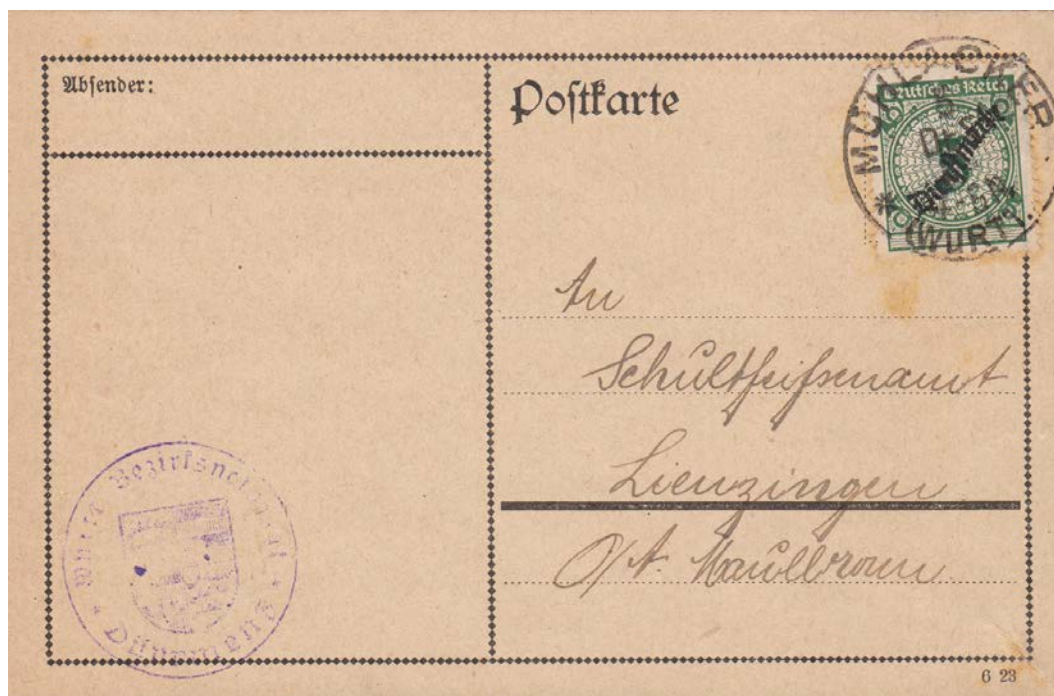 Absender:
Postkarte
MÜHLACKER
Deutsches Reich
5
DEZ
Dienstmarke
(WÜRTT).
An
Schultheißenamt
Lienzingen
O/A. Maulbronn
Württ. Bezirksnotariat
Dürrmenz
6 23